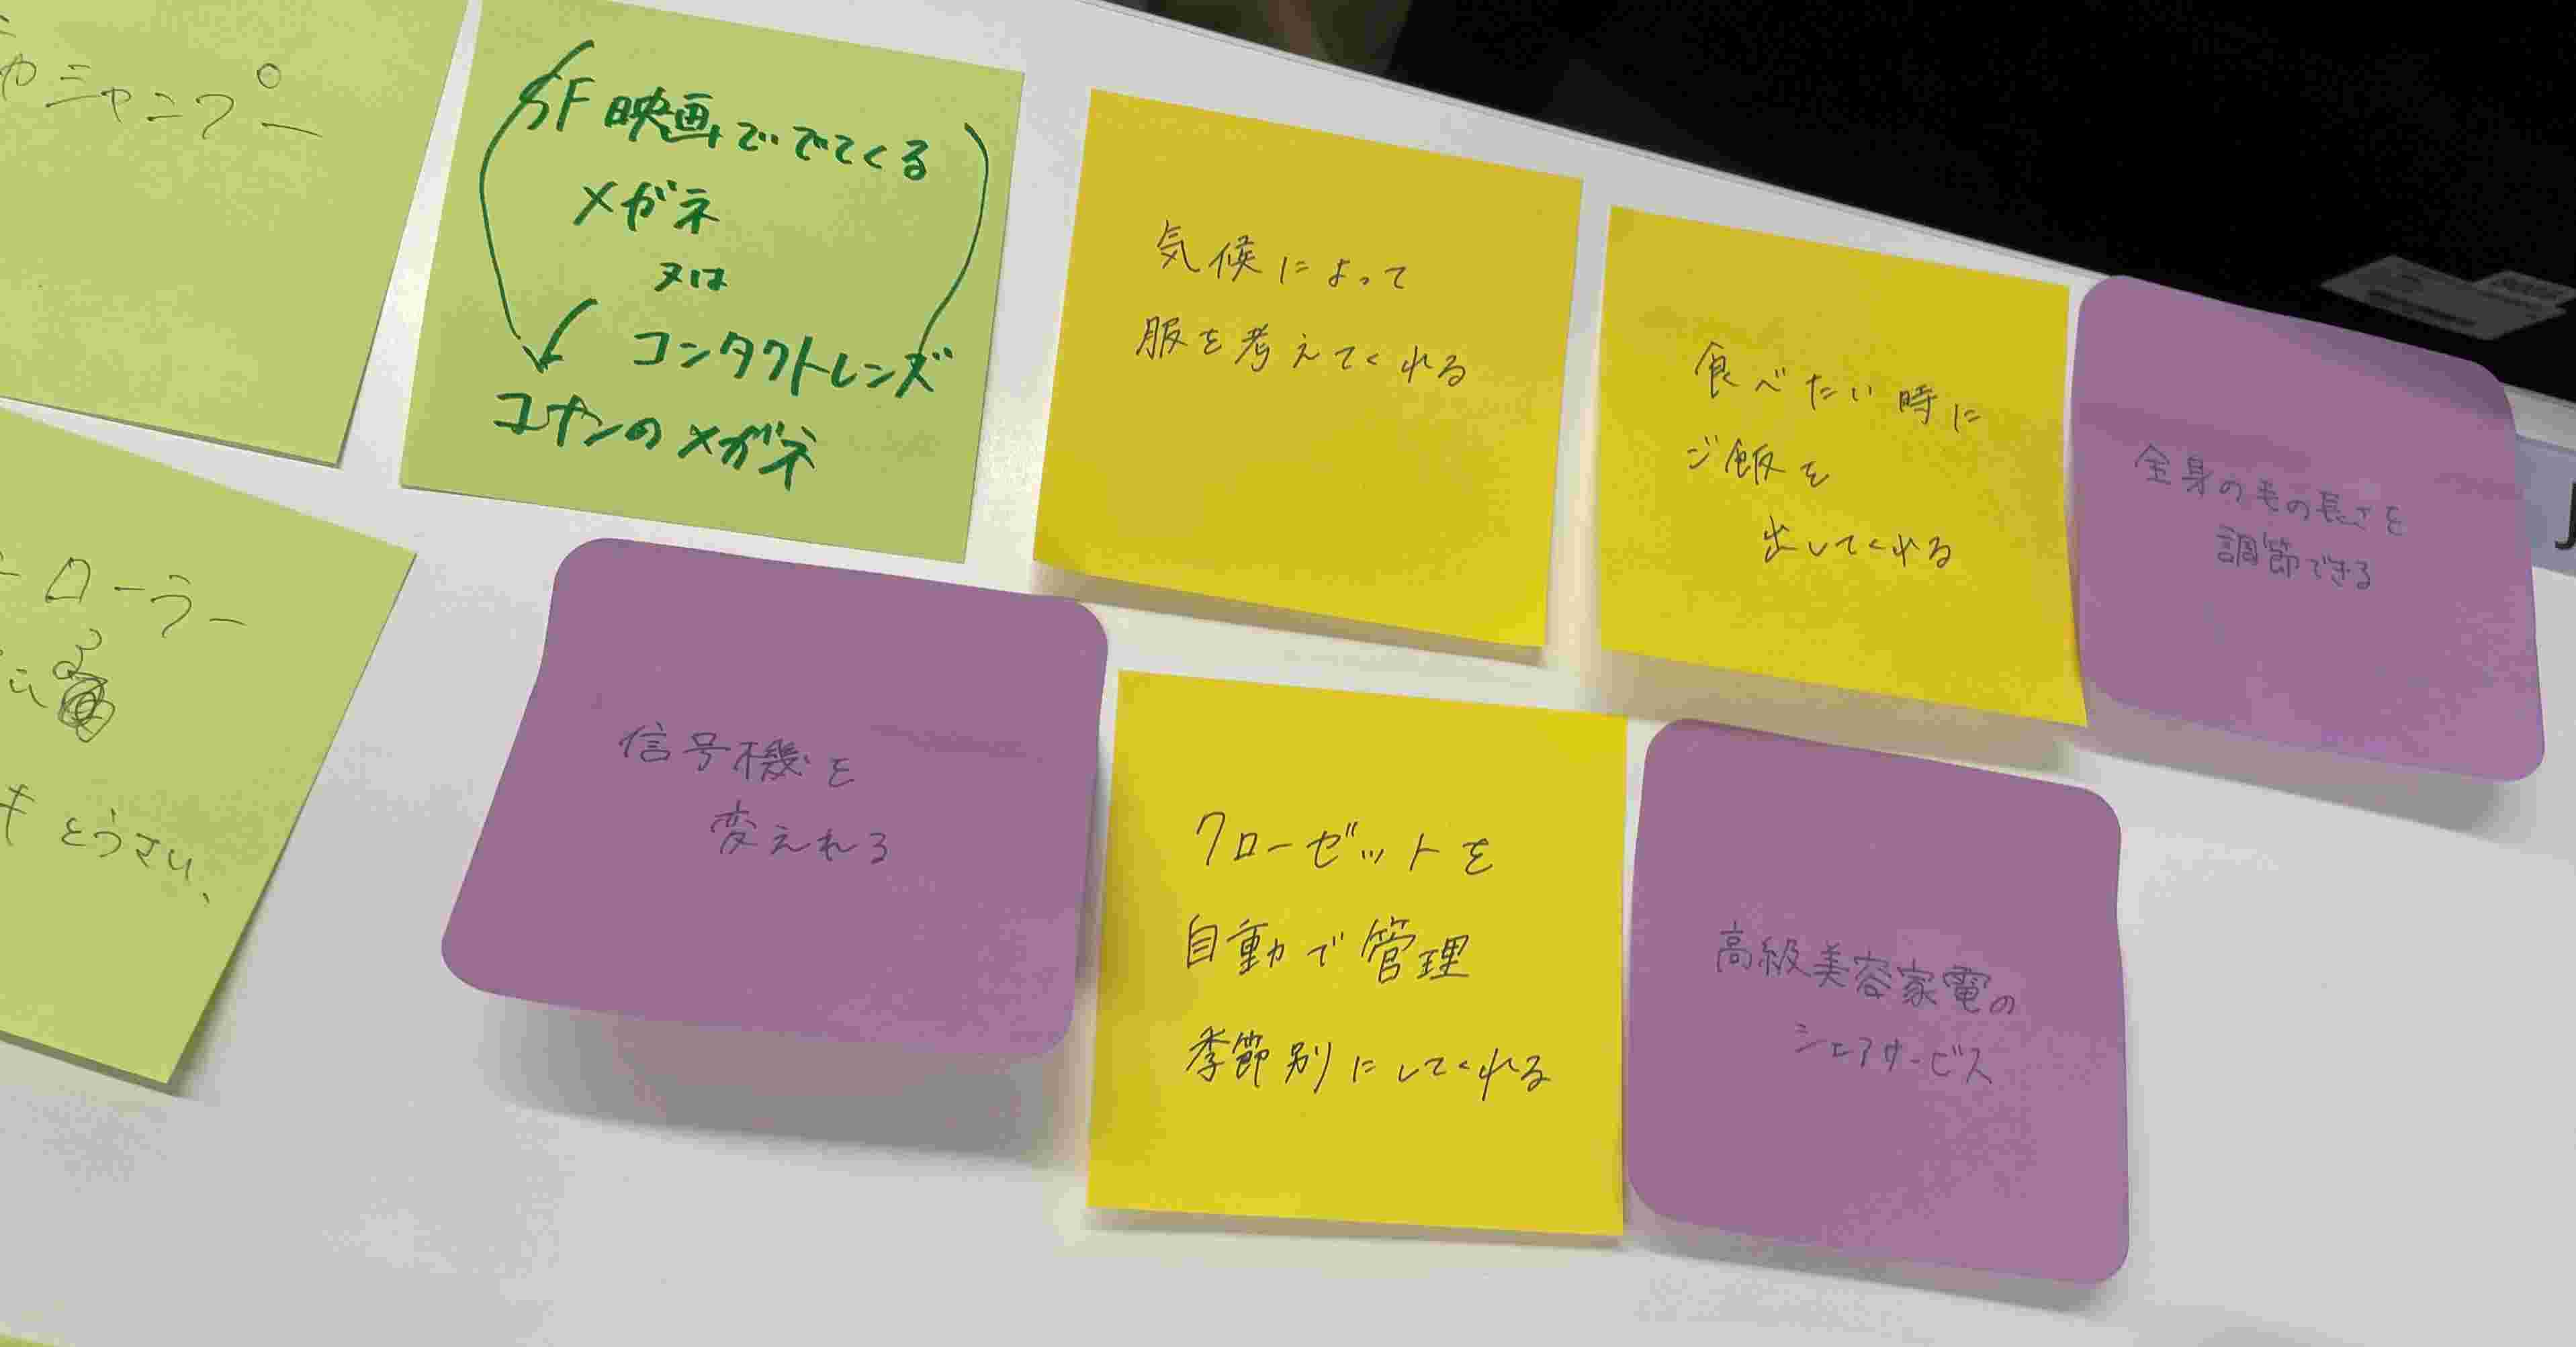 ャシャンプー
SF映画ででてくる
メガネ
又は
コンタクトレンズ
コナンのメガネ
気候によって
服を考えてくれる
食べたい時に
ご飯を
出してくれる
全身の毛の長さを
調節できる
ローラー
とうさい
信号機を
変えれる
クローゼットを
自動で管理
季節別にしてくれる
高級美容家電の
シェアサービス